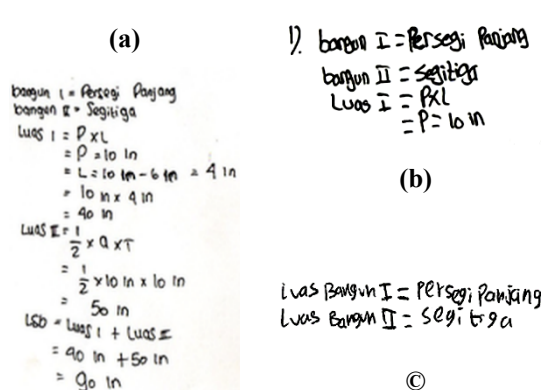 (a)
bangun I = Persegi Panjang
bangun II = Segitiga
Luas I = P x L
= P = 10 in
= L = 10 in - 6 in = 4 in
= 10 in x 4 in
= 40 in
Luas II = 1/2 x a x T
= 1/2 x 10 in x 10 in
= 50 in
LSD = Luas I + Luas II
= 40 in + 50 in
= 90 in
1). bangun I = Persegi Panjang
bangun II = Segitiga
Luas I = PXL
= P = 10 in
(b)
Luas Bangun I = Persegi Panjang
Luas Bangun II = Segitiga
©